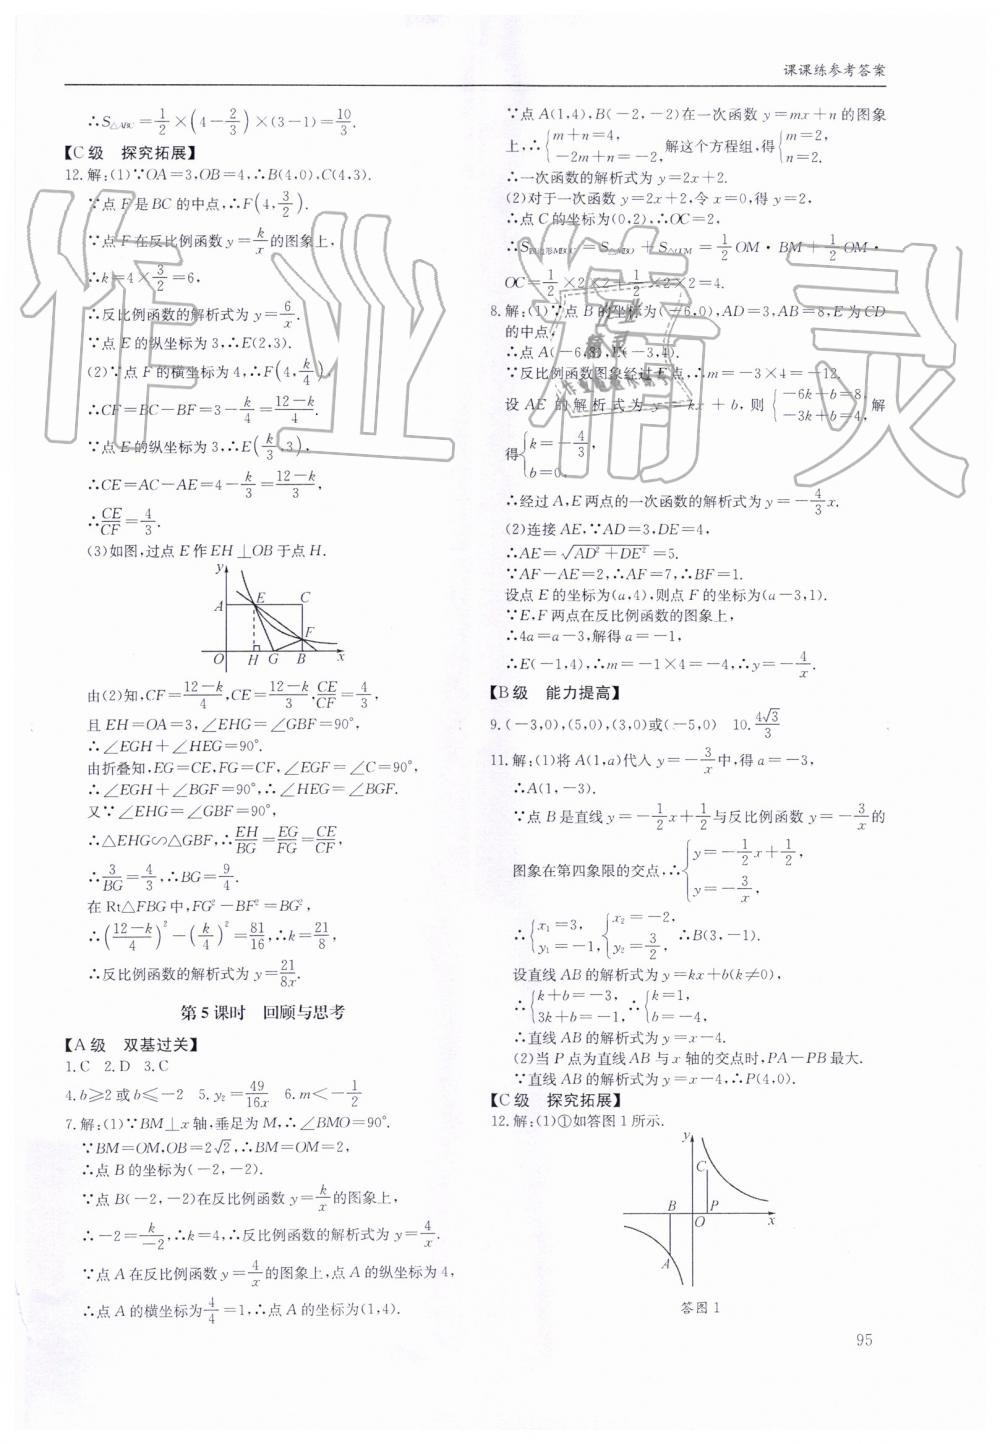 课课练参考答案
∴S△ABC=1/2×(4-2/3)×(3-1)=10/3.
【C级 探究拓展】
12.解:(1)∵OA=3,OB=4,∴B(4,0),C(4,3).
∵点F是BC的中点,∴F(4,3/2).
∵点F在反比例函数y=k/x的图象上,
∴k=4×3/2=6,
∴反比例函数的解析式为y=6/x.
∵点E的纵坐标为3,∴E(2,3).
(2)∵点F的横坐标为4,∴F(4,k/4),
∴CF=BC-BF=3-k/4=12-k/4.
∵点E的纵坐标为3,∴E(k/3,3),
∴CE=AC-AE=4-k/3=12-k/3,
∴CE/CF=4/3.
(3)如图,过点E作EH⊥OB于点H.
y
A E C
F
O H G B x
由(2)知,CF=12-k/4,CE=12-k/3,CE/CF=4/3,
且EH=OA=3,∠EHG=∠GBF=90°,
∴∠EGH+∠HEG=90°.
由折叠知,EG=CE,FG=CF,∠EGF=∠C=90°,
∴∠EGH+∠BGF=90°,∴∠HEG=∠BGF.
又∵∠EHG=∠GBF=90°,
∴△EHG∽△GBF,∴EH/BG=EG/FG=CE/CF,
∴3/BG=4/3,∴BG=9/4.
在Rt△FBG中,FG²-BF²=BG²,
∴(12-k/4)²-(k/4)²=81/16,∴k=21/8,
∴反比例函数的解析式为y=21/8x.
第5课时 回顾与思考
【A级 双基过关】
1.C 2.D 3.C
4.b≥2或b≤-2 5.y₂=49/16x 6.m<-1/2
7.解:(1)∵BM⊥x轴,垂足为M,∴∠BMO=90°.
∵BM=OM,OB=2√2,∴BM=OM=2,
∴点B的坐标为(-2,-2).
∵点B(-2,-2)在反比例函数y=k/x的图象上,
∴-2=k/-2,∴k=4,∴反比例函数的解析式为y=4/x.
∵点A在反比例函数y=4/x的图象上,点A的纵坐标为4,
∴点A的横坐标为4/4=1,∴点A的坐标为(1,4).
∵点A(1,4),B(-2,-2)在一次函数y=mx+n的图象
上,∴{m+n=4, -2m+n=-2, 解这个方程组,得{m=2, n=2.
∴一次函数的解析式为y=2x+2.
(2)对于一次函数y=2x+2,令x=0,得y=2,
∴点C的坐标为(0,2),∴OC=2,
∴S四边形MBOC=S△MBO+S△OCM=1/2OM·BM+1/2OM·
OC=1/2×2×2+1/2×2×2=4.
8.解:(1)∵点B的坐标为(-6,0),AD=3,AB=8,E为CD
的中点,
∴点A(-6,8),E(-3,4).
∵反比例函数图象经过E点,∴m=-3×4=-12.
设AE的解析式为y=kx+b,则{-6k+b=8, -3k+b=4, 解
得{k=-4/3, b=0,
∴经过A,E两点的一次函数的解析式为y=-4/3x.
(2)连接AE,∵AD=3,DE=4,
∴AE=√AD²+DE²=5.
∵AF-AE=2,∴AF=7,∴BF=1.
设点E的坐标为(a,4),则点F的坐标为(a-3,1).
∵E,F两点在反比例函数的图象上,
∴4a=a-3,解得a=-1,
∴E(-1,4),∴m=-1×4=-4,∴y=-4/x.
【B级 能力提高】
9.(-3,0),(5,0),(3,0)或(-5,0) 10.4√3/3
11.解:(1)将A(1,a)代入y=-3/x中,得a=-3,
∴A(1,-3).
∵点B是直线y=-1/2x+1/2与反比例函数y=-3/x的
图象在第四象限的交点,∴{y=-1/2x+1/2, y=-3/x,
∴{x₁=3, y₁=-1, {x₂=-2, y₂=3/2, ∴B(3,-1).
设直线AB的解析式为y=kx+b(k≠0),
∴{k+b=-3, 3k+b=-1, ∴{k=1, b=-4,
∴直线AB的解析式为y=x-4.
(2)当P点为直线AB与x轴的交点时,PA-PB最大.
∵直线AB的解析式为y=x-4,∴P(4,0).
【C级 探究拓展】
12.解:(1)①如答图1所示.
y
C
B P
O x
A
答图1
95
作业精灵